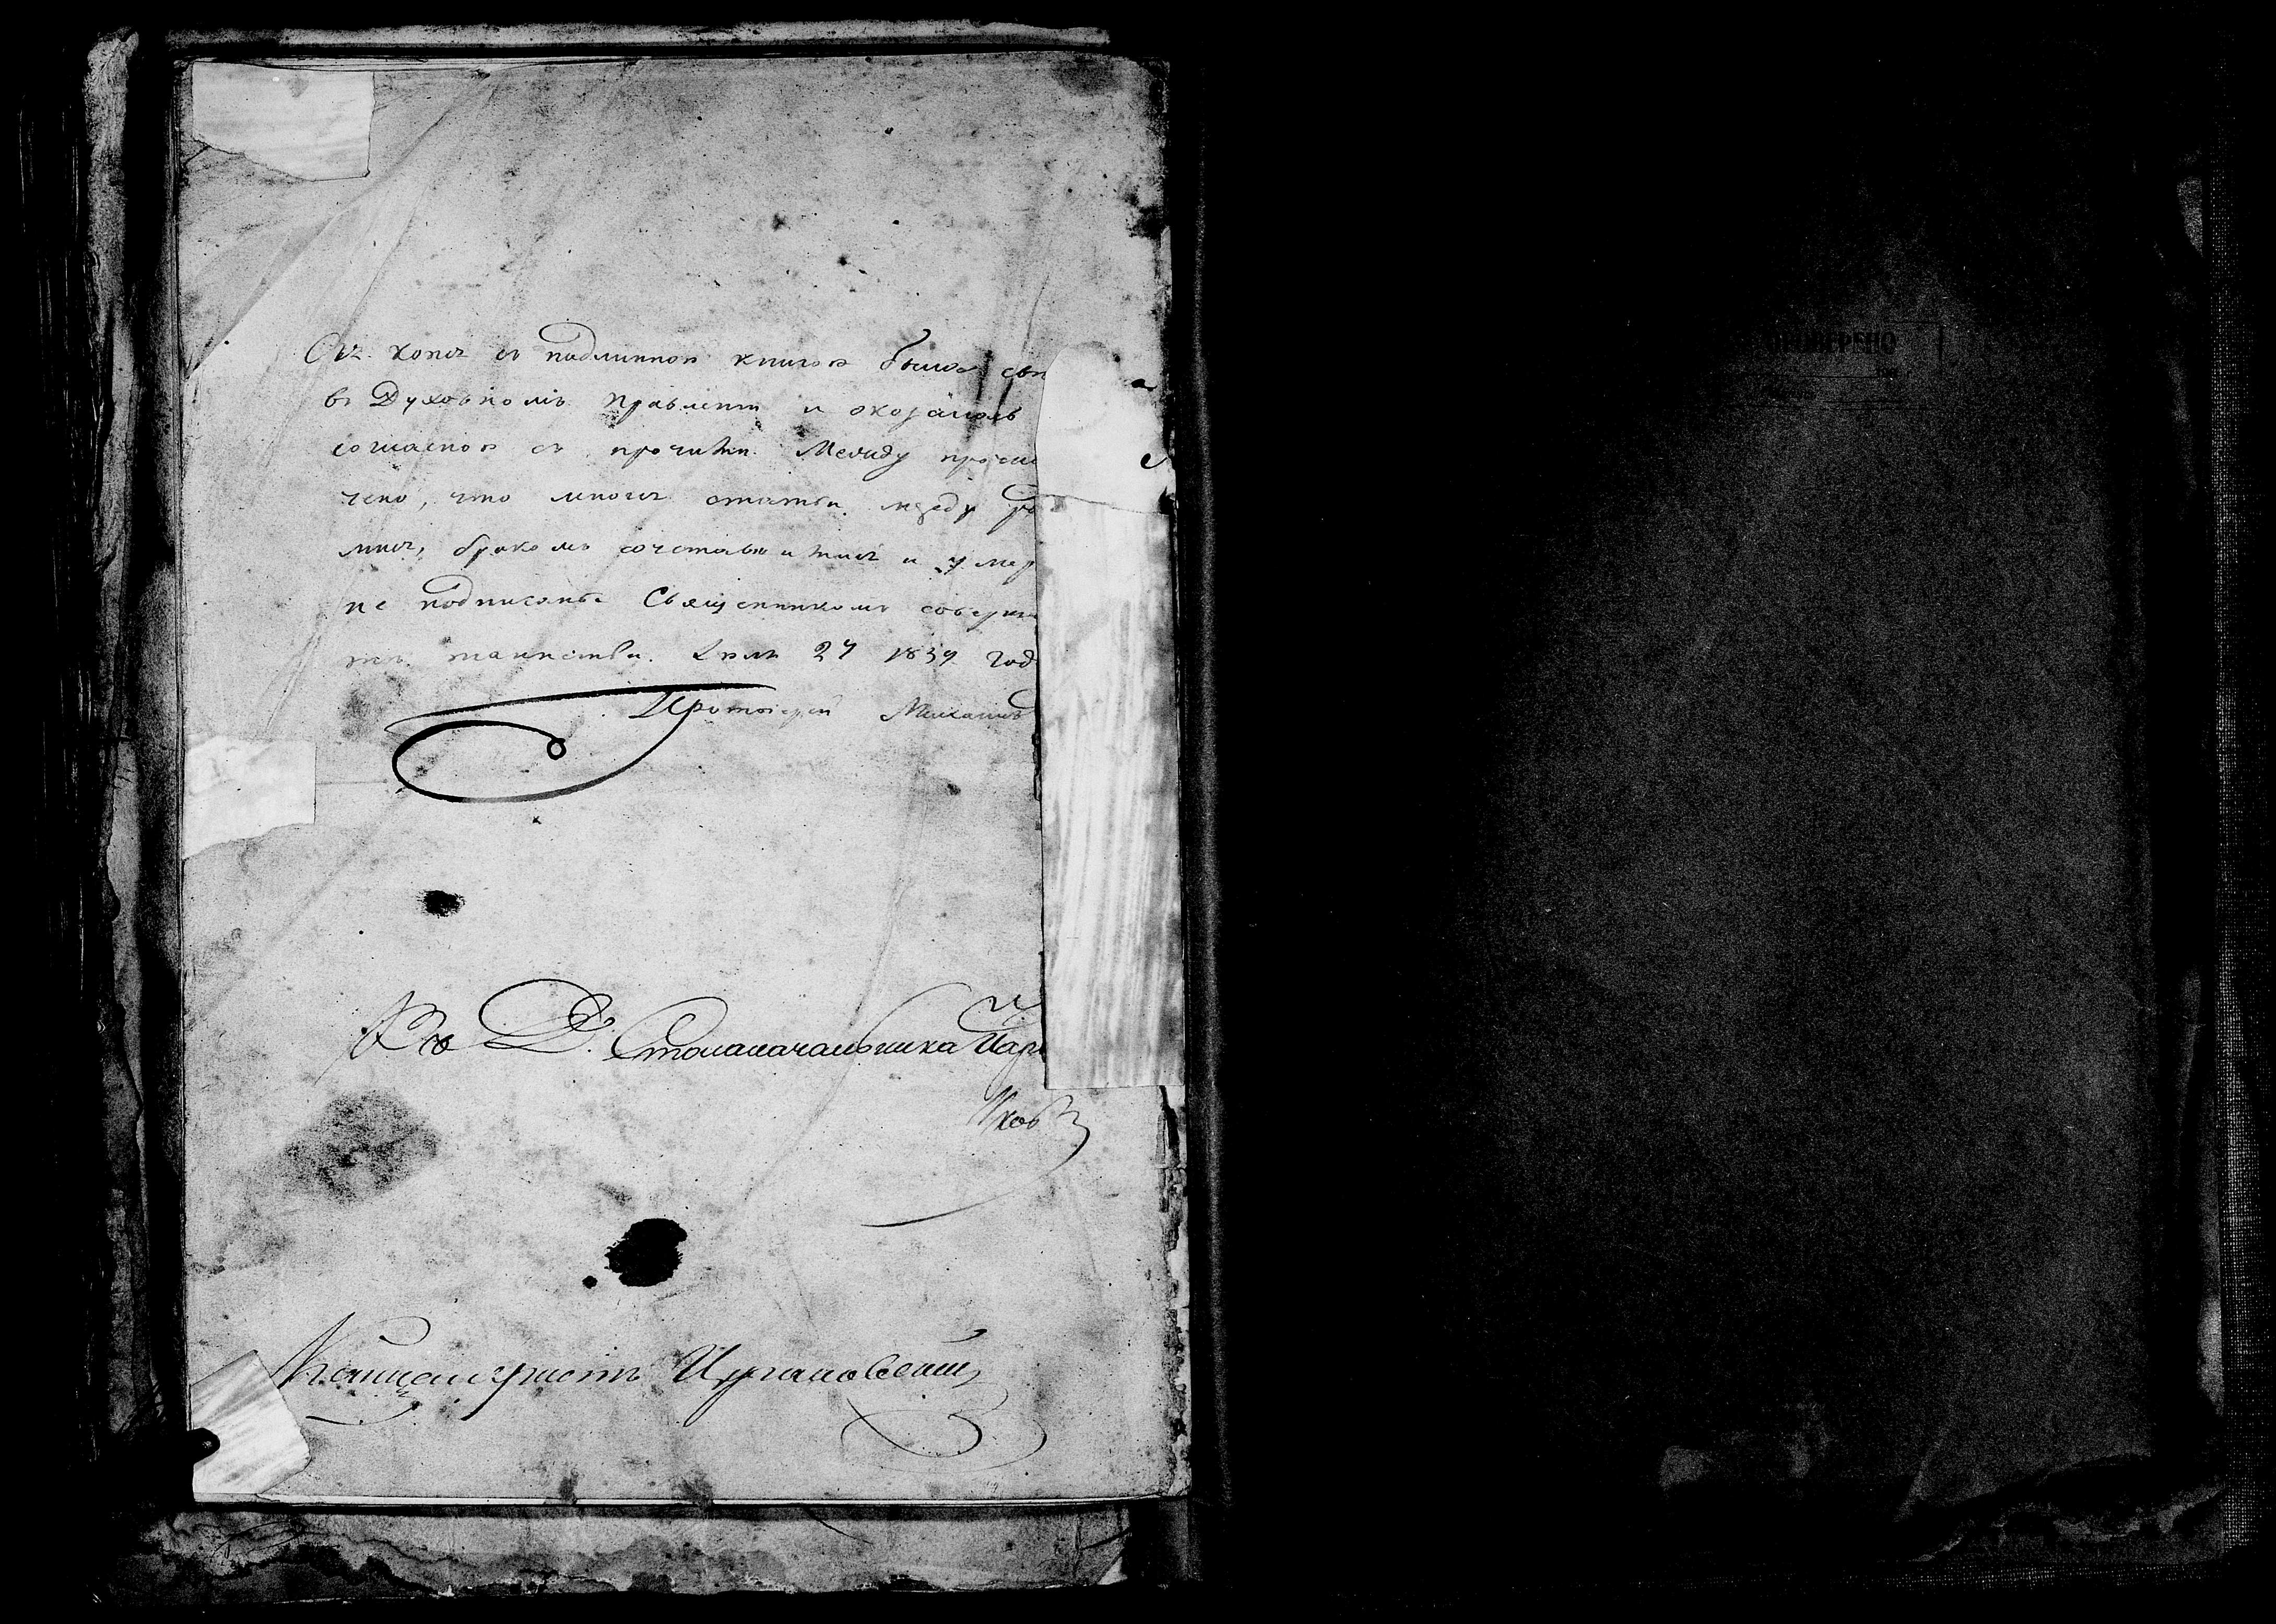 Сія копія съ подлинною книгою была свѣ
въ Духовномъ Правленіи и оказалось
согласною съ прочими. Между проч
чено, что многія статьи между ро
мися, бракомъ сочетавшимися и умер
не подписаны Священникомъ соверш
таинства. Іюля 27 1839 год
Протоіерей Михаилъ
Въ Д. Столаначальника
ковъ
Канцеляристъ
ПРОВЕРЕНО